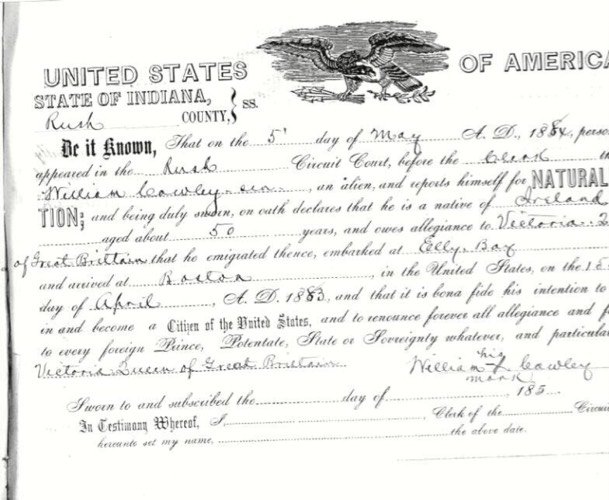 UNITED STATES OF AMERICA
STATE OF INDIANA,
Rush COUNTY, } ss.
Be it Known, That on the 5' day of May A. D., 1884, person
appeared in the Rush Circuit Court, before the Clerk th
William Cawley sen , an alien, and reports himself for NATURAL
TION; and being duly sworn, on oath declares that he is a native of Ireland
aged about 50 years, and owes allegiance to Victoria
of Great Brittain that he emigrated thence, embarked at Elly Bay
and arrived at Boston in the United States, on the
day of April , A. D. 1883, and that it is bona fide his intention to
in and become a Citizen of the United States, and to renounce forever all allegiance and f
to every foreign Prince, Potentate, State or Sovereignty whatever, and particular
Victoria Queen of Great Brittain William his Cawley
mark
Sworn to and subscribed the day of , 185
In Testimony Whereof, I Clerk of the Circuit
hereunto set my name, the above date.